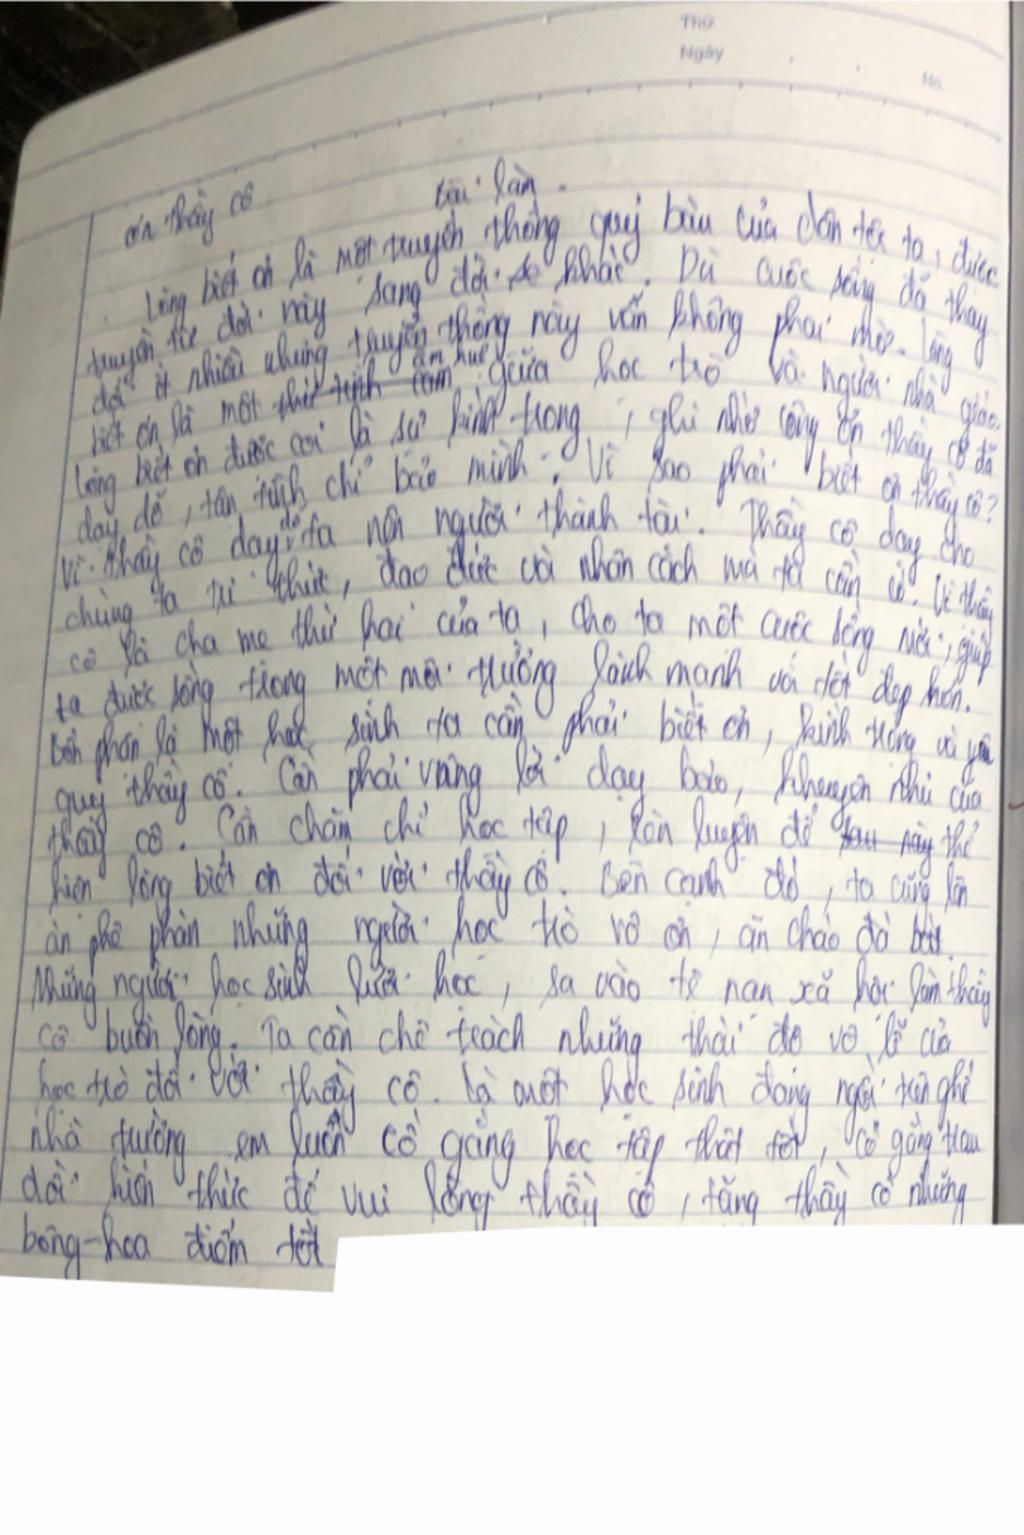 Thứ
Ngày
No.
ơn thầy cô
Bài làm.
Lòng biết ơn là một truyền thống quý báu của dân tộc ta, được
truyền từ đời này sang đời khác. Dù cuộc sống đã thay
đổi ít nhiều nhưng truyền thống này vẫn không phai mờ. Lòng
biết ơn là một thứ tình cảm giữa học trò và người nhà giáo.
Lòng biết ơn được coi là sự kính trọng, ghi nhớ công ơn thầy cô đã
dạy dỗ, tận tình chỉ bảo mình. Vì sao phải biết ơn thầy cô?
Vì thầy cô dạy dỗ ta nên người thành tài. Thầy cô dạy cho
chúng ta tri thức, đạo đức và nhân cách mà ta cần có. Vì thầy
cô là cha mẹ thứ hai của ta, cho ta một cuộc sống mới, giúp
ta được sống trong một môi trường lành mạnh và tốt đẹp hơn.
Bổn phận là một học sinh ta cần phải biết ơn, kính trọng và yêu
quý thầy cô. Cần phải vâng lời dạy bảo, khuyên nhủ của
thầy cô. Cần chăm chỉ học tập, rèn luyện để sau này thể
hiện lòng biết ơn đối với thầy cô. Bên cạnh đó, ta cũng lên
án phê phán những người học trò vô ơn, ăn cháo đá bát.
Những người học sinh lười học, sa vào tệ nạn xã hội làm thầy
cô buồn lòng. Ta cần chê trách những thái độ vô lễ của
học trò đối với thầy cô. Là một học sinh đang ngồi trên ghế
nhà trường em luôn cố gắng học tập thật tốt, cố gắng trau
dồi kiến thức để vui lòng thầy cô, tặng thầy cô những
bông-hoa điểm tốt